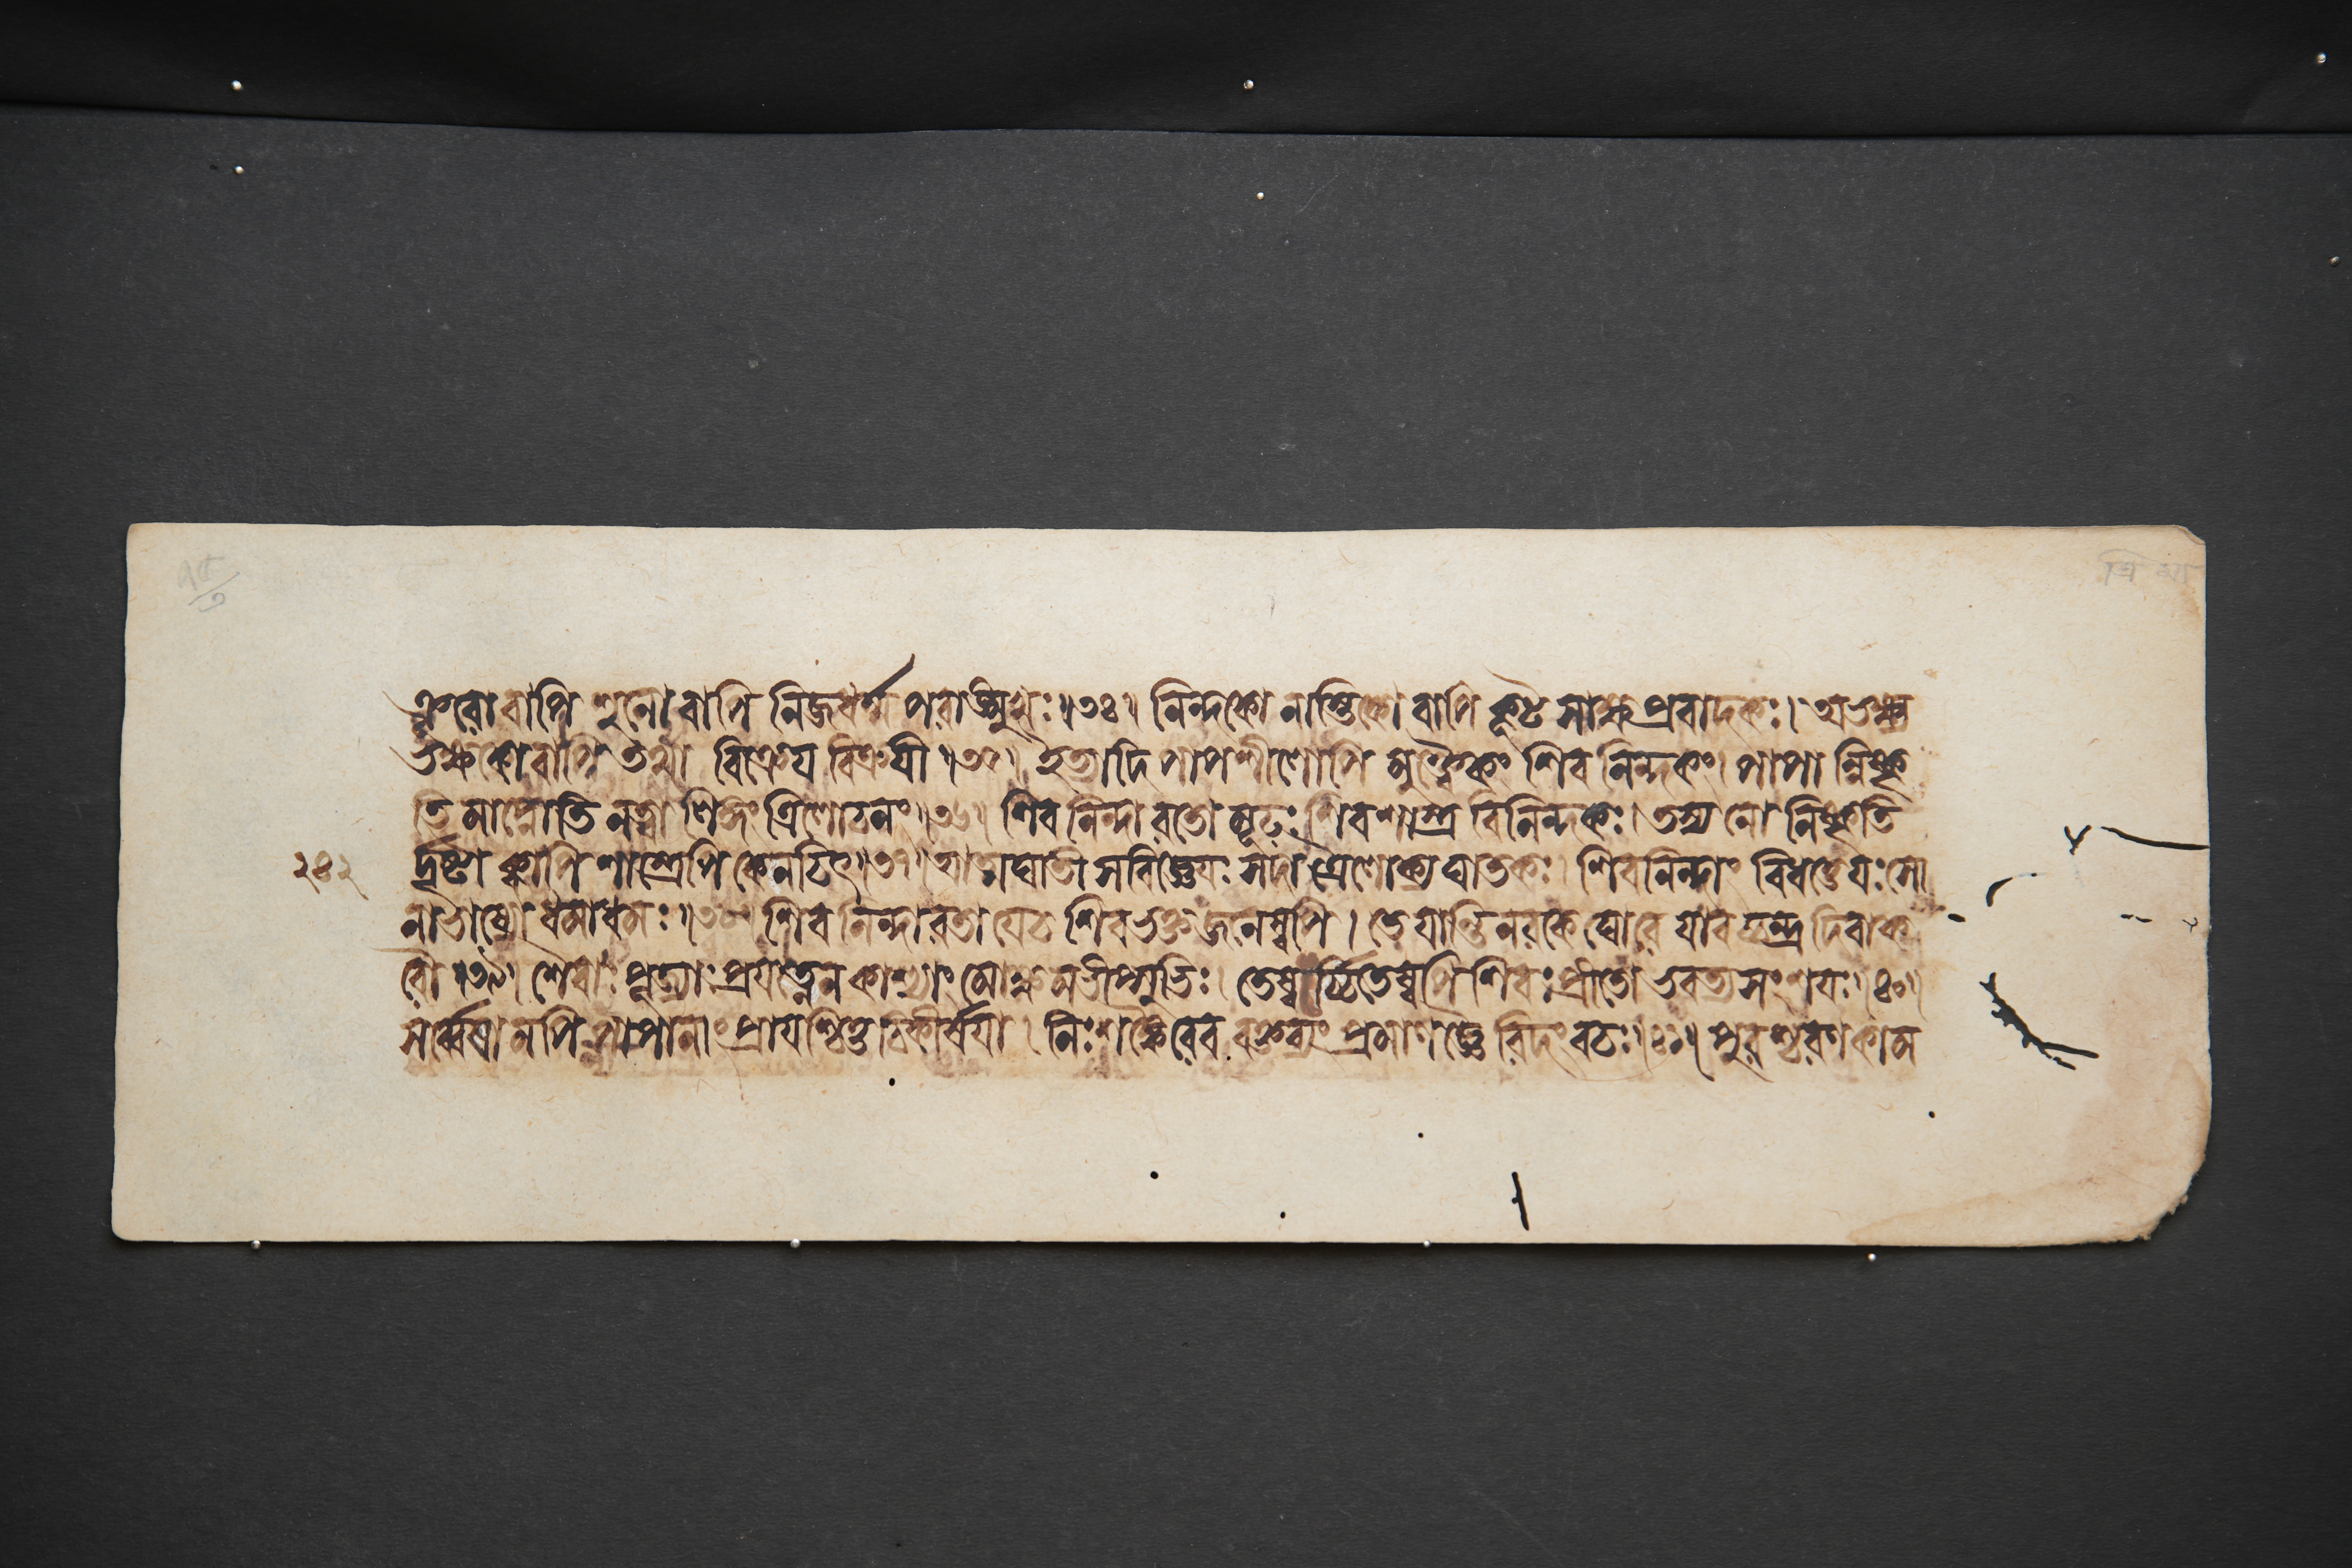 ক্রূরো বাপি শুনো বাপি নিজধর্ম্ম পরাঙ্মুখঃ ॥৩৪॥ নিন্দকো নাস্তিকো বাপি কূট সাক্ষ্য প্রবাদকঃ। অভক্ষ্য
ভক্ষকো বাপি তথা বিক্রেয় বিক্রয়ী ॥৩৫॥ ইত্যাদি পাপশীলোপি মুক্ত্বৈকং শিব নিন্দকং। পাপা ন্নিষ্কৃ
তি মাপ্নোতি নত্বা লিঙ্গং ত্রিলোচনং ॥৩৬॥ শিব নিন্দা রতো মূঢ়ঃ শিবশাস্ত্র বিনিন্দকঃ। তস্য নো নিষ্কৃতি
২৪২ র্দৃষ্টা ক্বাপি শাস্ত্রেপি কেনচিৎ ॥৩৭॥ আত্মঘাতী স বিজ্ঞেয়ঃ সদা ত্রৈলোক্য ঘাতকঃ। শিবনিন্দাং বিধত্তে যঃ সো
নাভাষ্যো ধমাধমঃ ॥৩৮॥ শিব নিন্দারতা যেচ শিবভক্ত জনেষ্বপি। তে যান্তি নরকে ঘোরে যাবচ্চন্দ্র দিবাক
রৌ ॥৩৯॥ শৈবাঃ পূজ্যাঃ প্রযত্নেন কাশ্যাং মোক্ষমভীপ্সুভিঃ। তেষ্বর্চ্চিতেষ্বপি শিবঃ প্রীতো ভবত্যসংশয়ঃ ॥৪০॥
সর্ব্বেষা মপি পাপানাং প্রায়শ্চিত্ত চিকীর্ষয়া। নিঃশঙ্কৈরেব বক্তব্যং প্রমাণজ্ঞৈ রিদং বচঃ ॥৪১॥ পুরশ্চরণ কাম